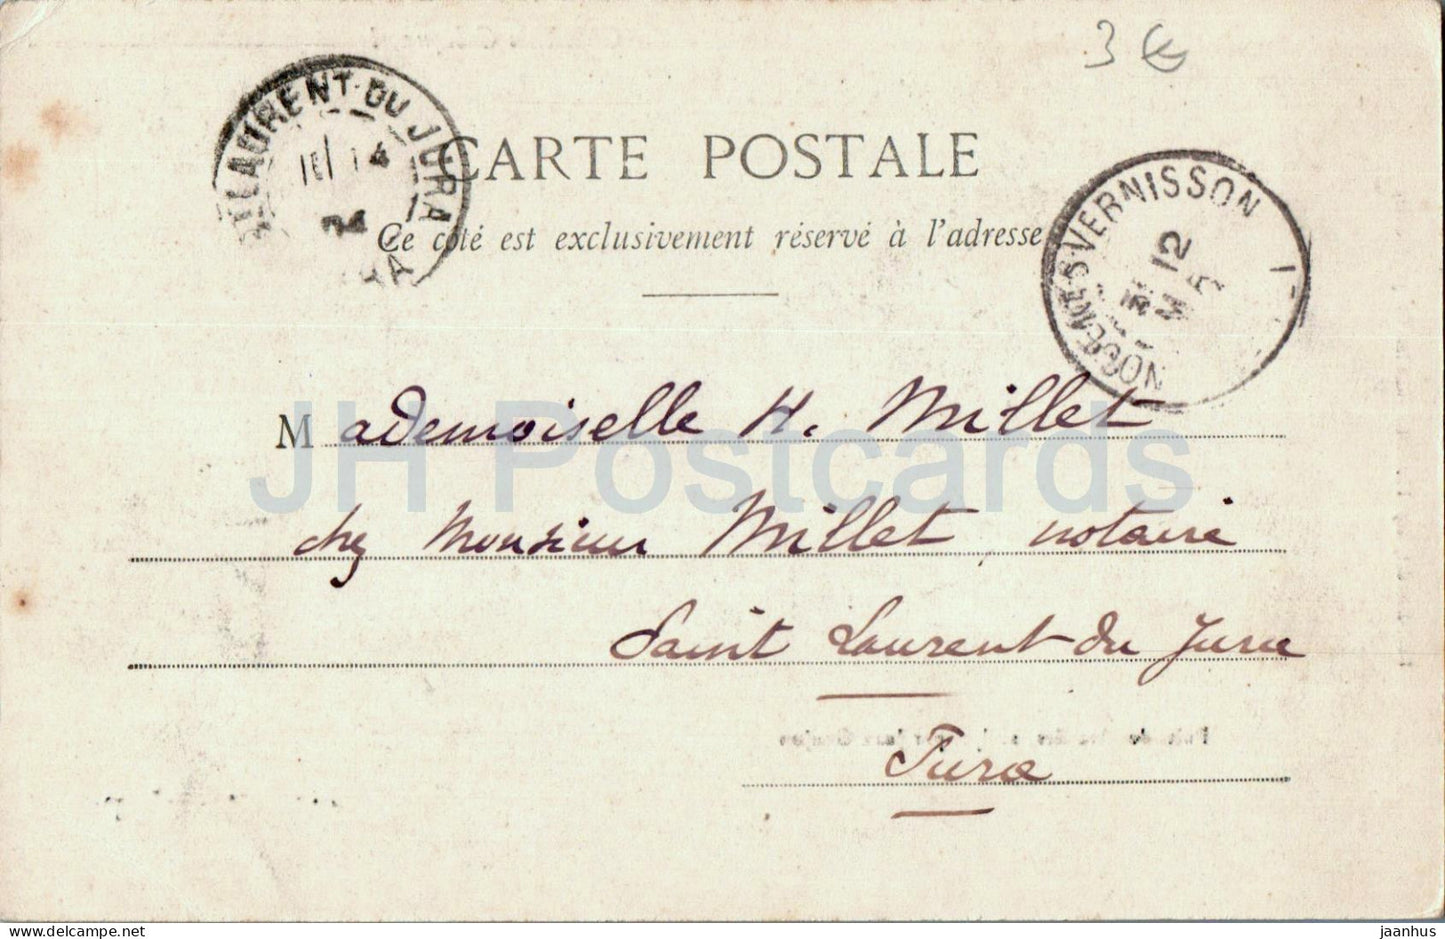 3 €
ST LAURENT-DU-JURA
14
04
CARTE POSTALE
Ce côté est exclusivement réservé à l'adresse
NOGENT-S-VERNISSON
12
Mademoiselle H. Millet
chez Monsieur Millet, notaire
Saint Laurent du Jura
Jura
JH Postcards
jaanhus